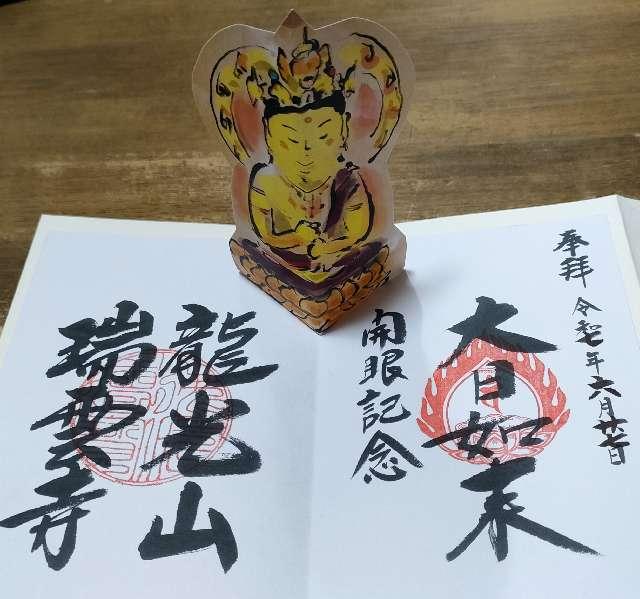 奉拝 令和七年六月廿七日
大日如来
開眼記念
龍光山
瑞雲寺